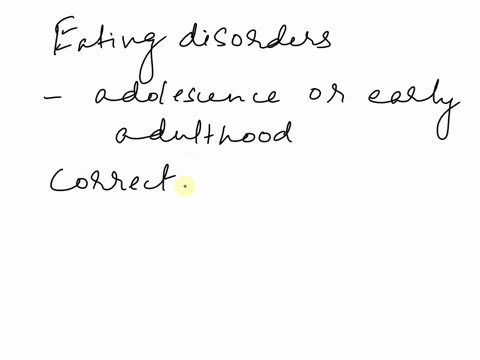 Eating disorders
- adolescence or early
adulthood
Correct.